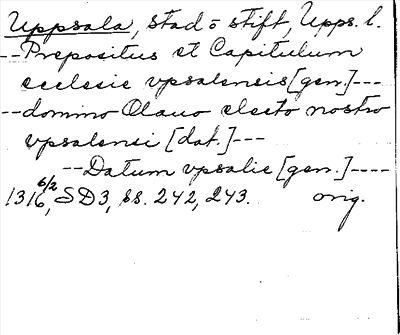 Uppsala, stad o stift, Upps. l.
--Prepositus et Capitulum
ecclesie vpsalensis [gen.]---
--domino Olauo electo nostro
vpsalensi [dat.]---
--Datum vpsalie [gen.]----
1316 6/2, SD3, ss. 242, 243. orig.